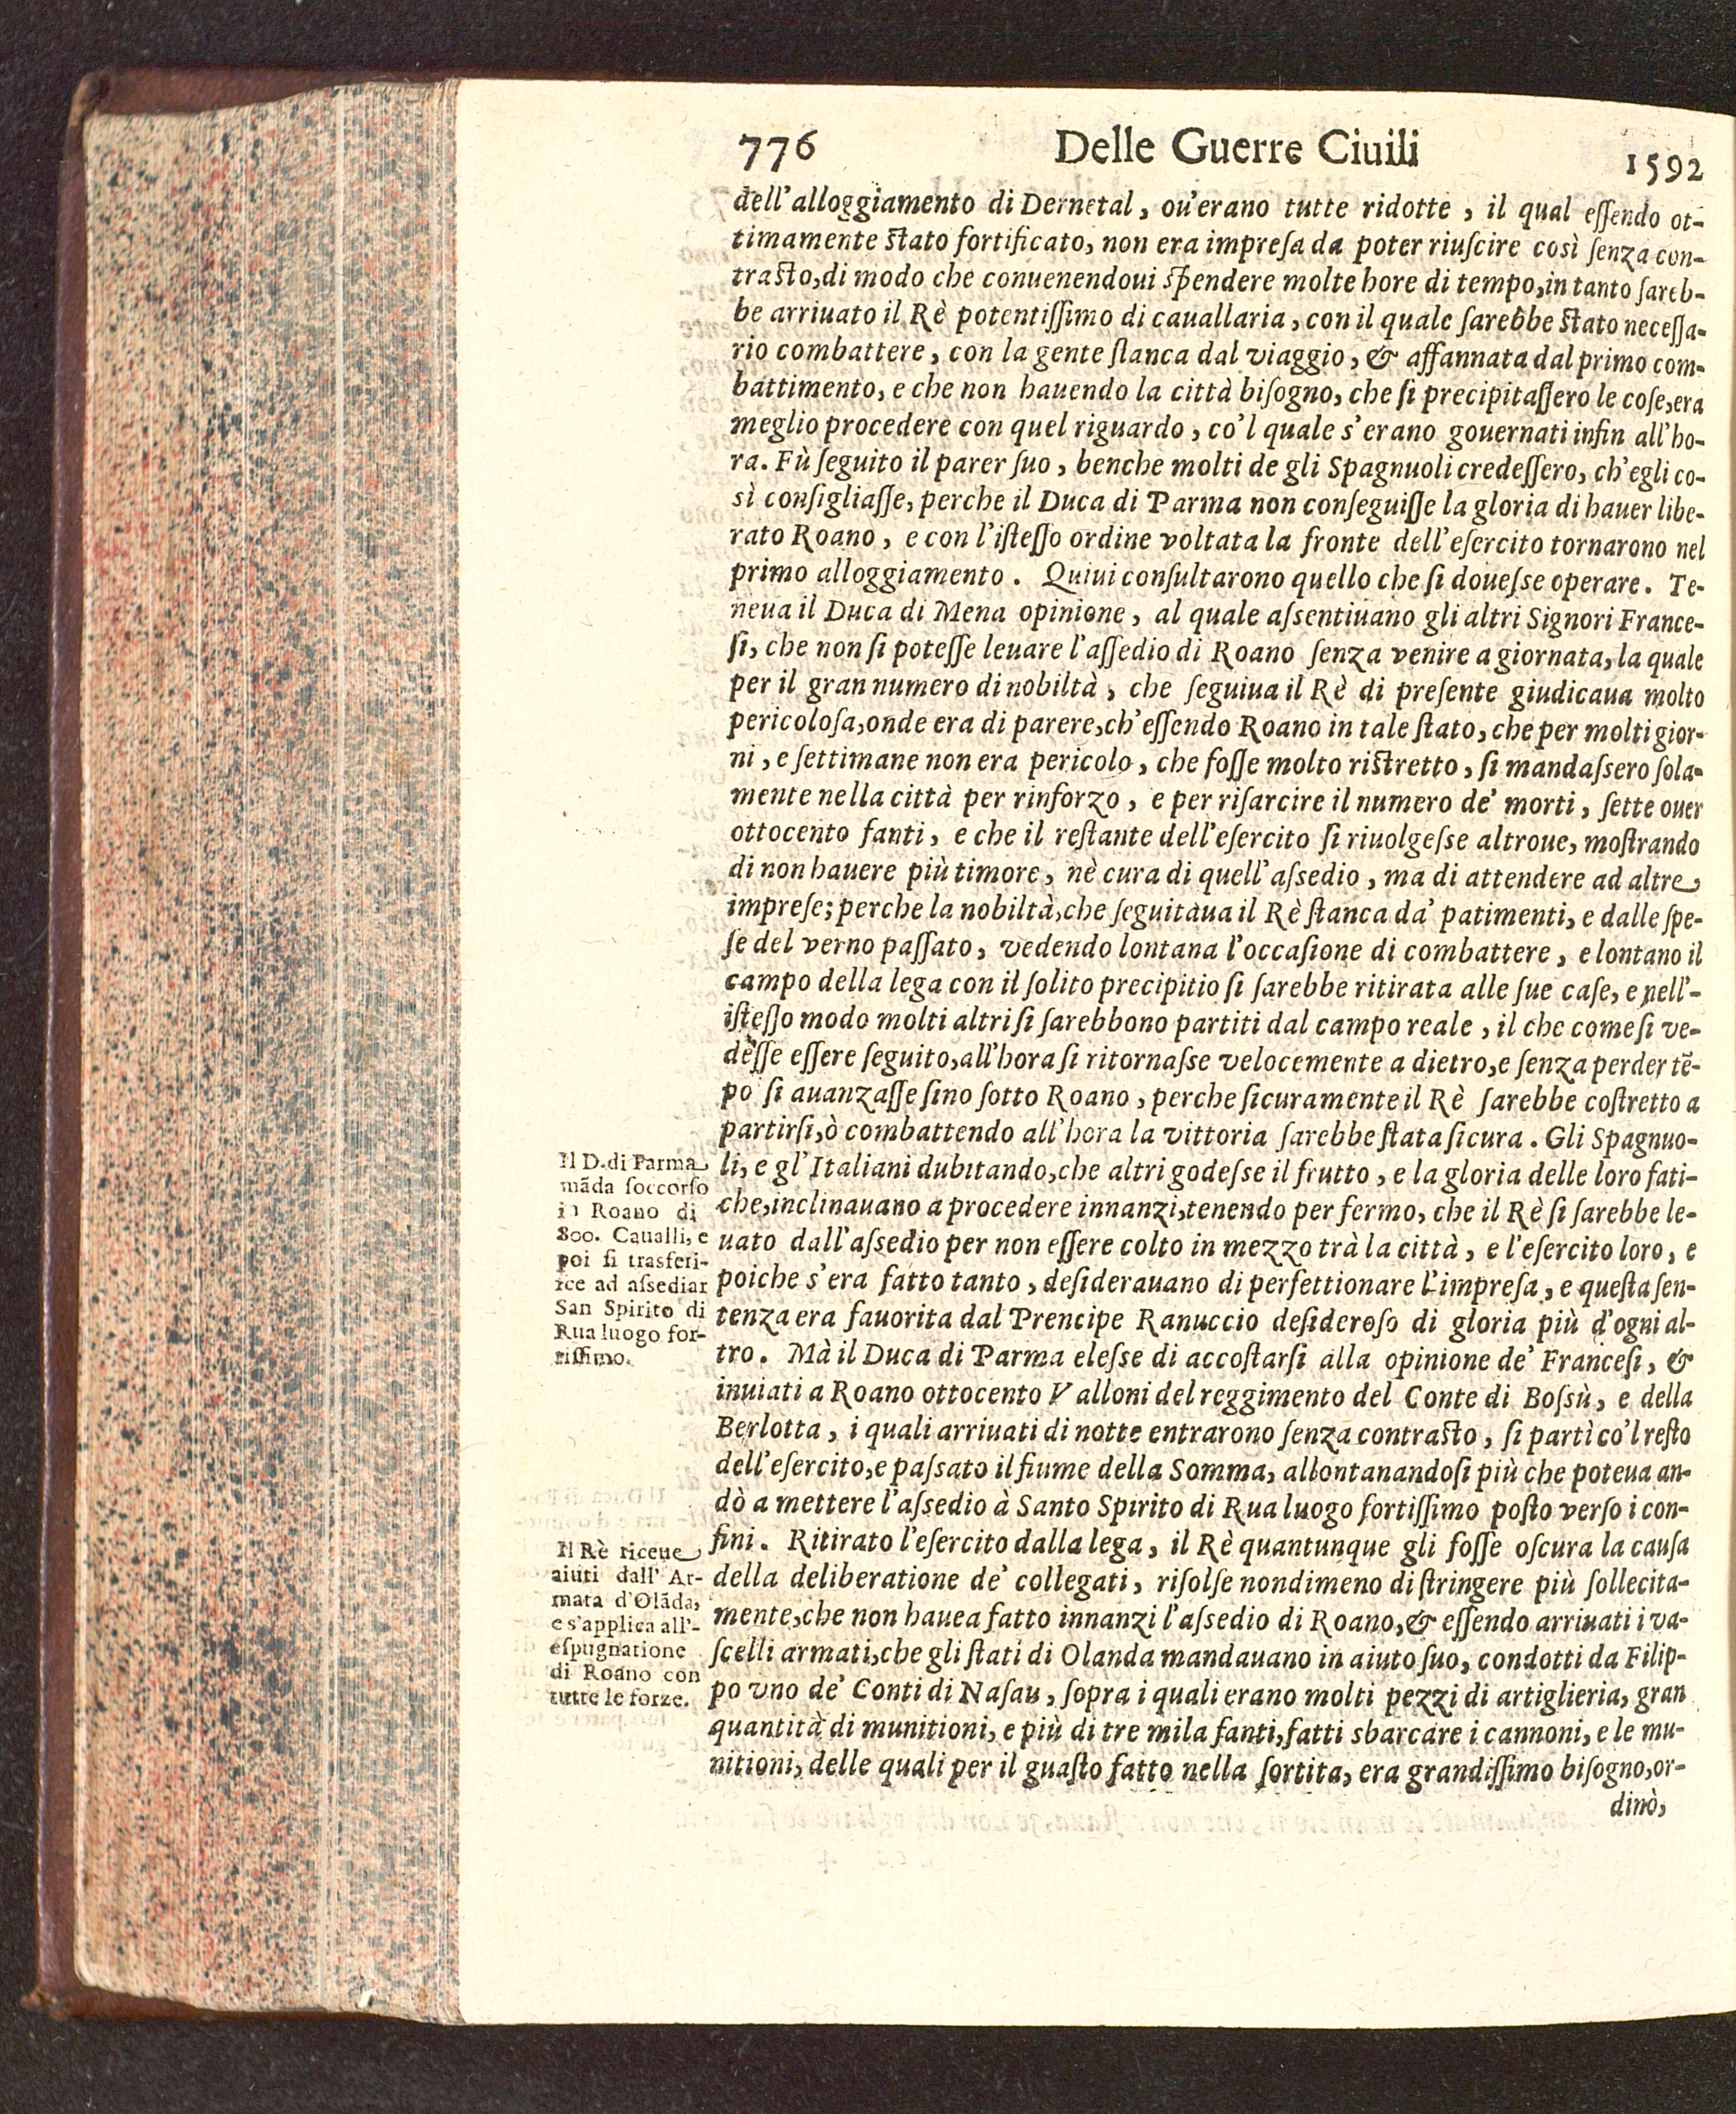 776 Delle Guerre Ciuili 1592
dell'alloggiamento di Dernetal, ou'erano tutte ridotte, il qual eſſendo ot-
timamente ſtato fortificato, non era impreſa da poter riuſcire così ſenza con-
traſto, di modo che conuenendoui ſpendere molte hore di tempo, in tanto ſareb-
be arriuato il Rè potentiſſimo di cauallaria, con il quale ſarebbe ſtato neceſſa-
rio combattere, con la gente ſtanca dal viaggio, & affannata dal primo com-
battimento, e che non hauendo la città biſogno, che ſi precipitaſſero le coſe, era
meglio procedere con quel riguardo, co'l quale s'erano gouernati infin all'ho-
ra. Fù ſeguito il parer ſuo, benche molti de gli Spagnuoli credeſſero, ch'egli co-
sì conſigliaſſe, perche il Duca di Parma non conſeguiſſe la gloria di hauer libe-
rato Roano, e con l'iſteſſo ordine voltata la fronte dell'eſercito tornarono nel
primo alloggiamento. Quiui conſultarono quello che ſi doueſse operare. Te-
neua il Duca di Mena opinione, al quale aſsentiuano gli altri Signori France-
ſi, che non ſi poteſſe leuare l'aſſedio di Roano ſenza venire a giornata, la quale
per il gran numero di nobiltà, che ſeguiua il Rè di preſente giudicaua molto
pericoloſa, onde era di parere, ch'eſſendo Roano in tale ſtato, che per molti gior-
ni, e ſettimane non era pericolo, che foſſe molto riſtretto, ſi mandaſsero ſola-
mente nella città per rinforzo, e per riſarcire il numero de' morti, ſette ouer
ottocento fanti, e che il reſtante dell'eſercito ſi riuolgeſse altroue, moſtrando
di non hauere più timore, nè cura di quell'aſsedio, ma di attendere ad altre
impreſe; perche la nobiltà, che ſeguitaua il Rè ſtanca da' patimenti, e dalle ſpe-
ſe del verno paſſato, vedendo lontana l'occaſione di combattere, e lontano il
campo della lega con il ſolito precipitio ſi ſarebbe ritirata alle ſue caſe, e nell'-
iſteſſo modo molti altri ſi ſarebbono partiti dal campo reale, il che come ſi ve-
deſſe eſſere ſeguito, all'hora ſi ritornaſse velocemente a dietro, e ſenza perder tẽ-
po ſi auanzaſſe ſino ſotto Roano, perche ſicuramente il Rè ſarebbe coſtretto a
partirſi, ò combattendo all'hora la vittoria ſarebbe ſtata ſicura. Gli Spagnuo-
li, e gl'Italiani dubitando, che altri godeſse il frutto, e la gloria delle loro fati-
che, inclinauano a procedere innanzi, tenendo per fermo, che il Rè ſi ſarebbe le-
uato dall'aſsedio per non eſſere colto in mezzo trà la città, e l'eſercito loro, e
poiche s'era fatto tanto, deſiderauano di perfettionare l'impreſa, e queſta ſen-
tenza era fauorita dal Prencipe Ranuccio deſideroſo di gloria più d'ogni al-
tro. Mà il Duca di Parma eleſse di accoſtarſi alla opinione de' Franceſi, &
inuiati a Roano ottocento Valloni del reggimento del Conte di Boſsù, e della
Berlotta, i quali arriuati di notte entrarono ſenza contraſto, ſi partì co'l reſto
dell'eſercito, e paſsato il fiume della Somma, allontanandoſi più che poteua an-
dò a mettere l'aſsedio à Santo Spirito di Rua luogo fortiſſimo poſto verſo i con-
fini. Ritirato l'eſercito dalla lega, il Rè quantunque gli foſſe oſcura la cauſa
della deliberatione de' collegati, riſolſe nondimeno di ſtringere più ſollecita-
mente, che non hauea fatto innanzi l'aſsedio di Roano, & eſſendo arriuati i va-
ſcelli armati, che gli ſtati di Olanda mandauano in aiuto ſuo, condotti da Filip-
po vno de' Conti di Naſau, ſopra i quali erano molti pezzi di artiglieria, gran
quantità di munitioni, e più di tre mila fanti, fatti sbarcare i cannoni, e le mu-
nitioni, delle quali per il guaſto fatto nella ſortita, era grandiſſimo biſogno, or-
dinò,
Il D. di Parma
mãda ſoccorſo
in Roano di
800. Caualli, e
poi ſi trasferi-
ſce ad aſsediar
San Spirito di
Rua luogo for-
tiſſimo.
Il Rè riceue
aiuti dall' Ar-
mata d'Olãda,
e s'applica all'-
eſpugnatione
di Roano con
tutte le forze.